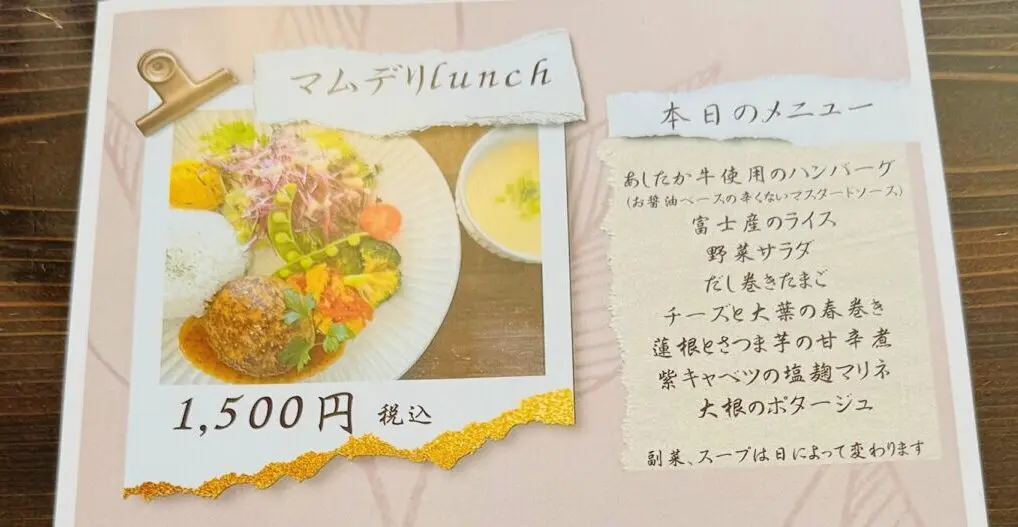 マムデリlunch
1,500円 税込
本日のメニュー
あしたか牛使用のハンバーグ
(お醤油ベースの辛くないマスタードソース)
富士産のライス
野菜サラダ
だし巻きたまご
チーズと大葉の春巻き
蓮根とさつま芋の甘辛煮
紫キャベツの塩麹マリネ
大根のポタージュ
副菜、スープは日によって変わります